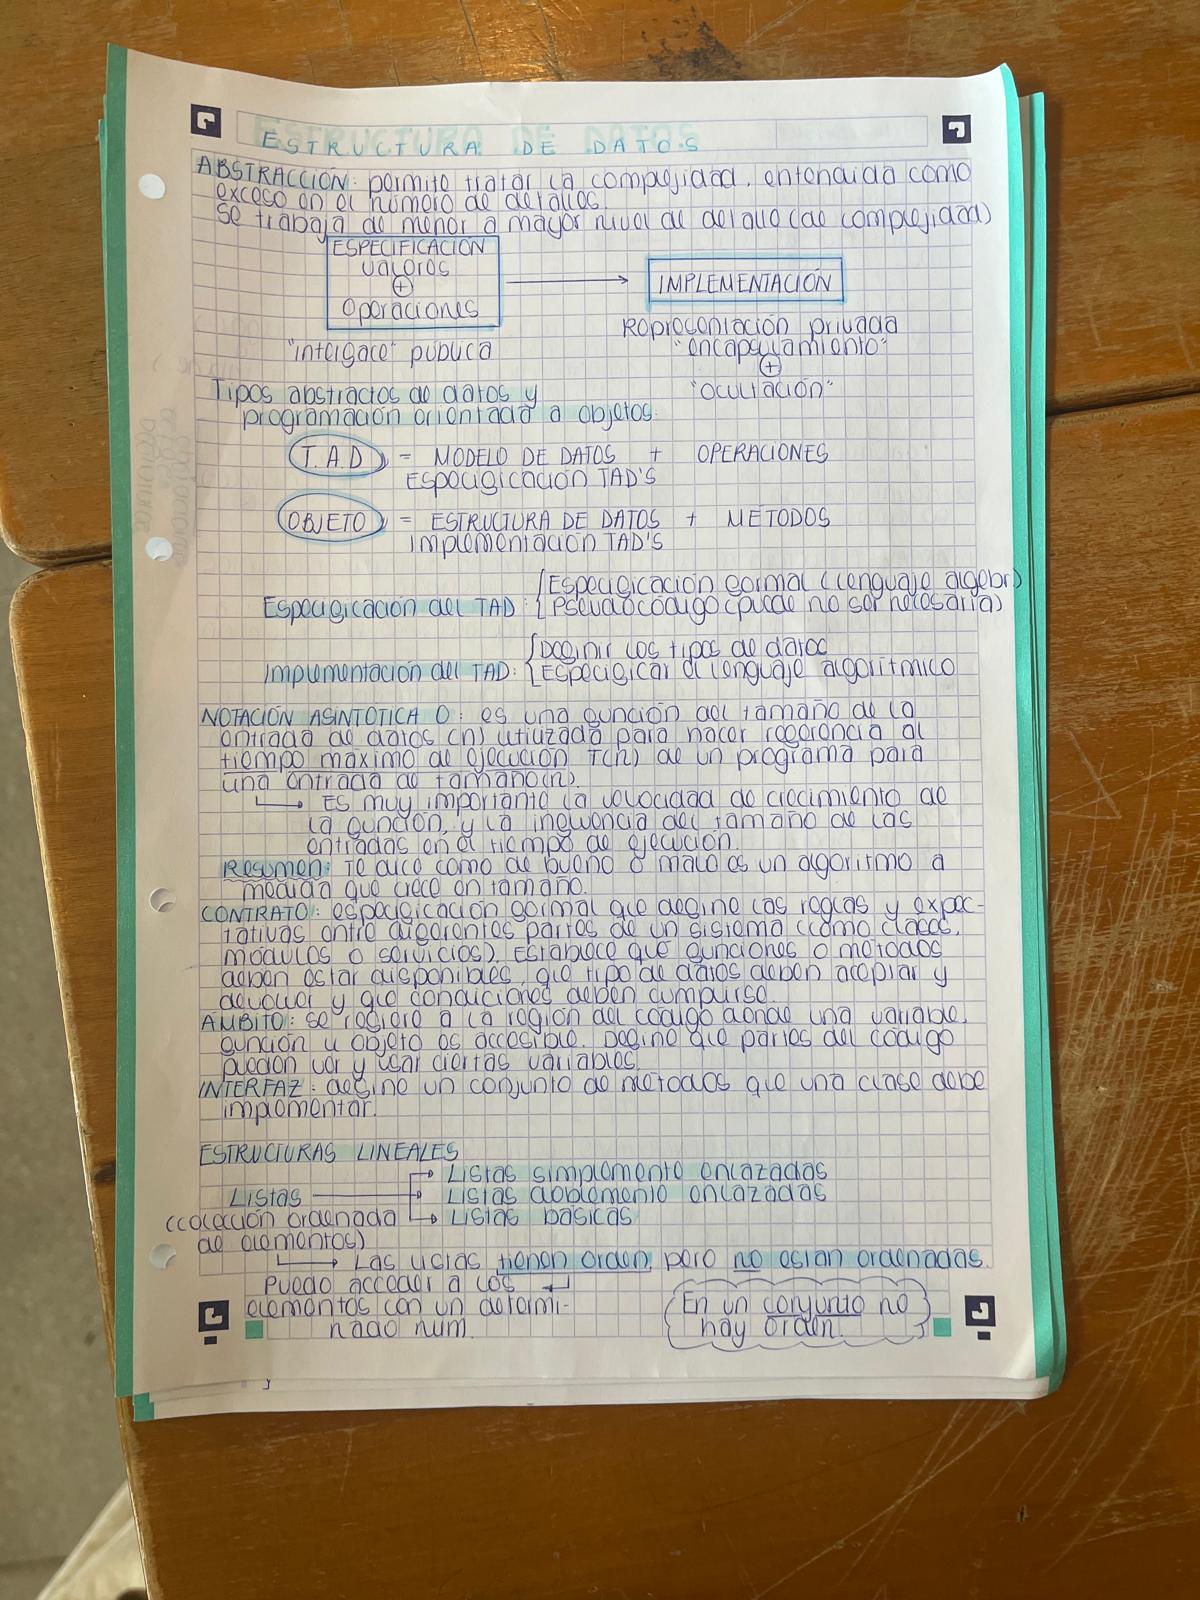 ESTRUCTURA DE DATOS
ABSTRACCIÓN: permite tratar la complejidad, entendida como
exceso en el número de detalles.
Se trabaja de menor a mayor nivel de detalle (de complejidad)
ESPECIFICACIÓN
valores
+
Operaciones
IMPLEMENTACIÓN
"interface" pública
Representación privada
"encapsulamiento"
+
"ocultación"
Tipos abstractos de datos y
programación orientada a objetos.
T.A.D = MODELO DE DATOS + OPERACIONES
Especificación TAD'S
OBJETO = ESTRUCTURA DE DATOS + METODOS
implementación TAD'S
Especificación del TAD: { Especificación formal (lenguaje algebr)
Pseudocódigo (puede no ser necesaria)
Implementación del TAD: { Definir los tipos de datos
Especificar el lenguaje algorítmico
NOTACIÓN ASINTOTICA O: es una función del tamaño de la
entrada de datos (n) utilizada para hacer referencia al
tiempo máximo de ejecución T(n) de un programa para
una entrada de tamaño (n).
Es muy importante la velocidad de crecimiento de
la función, y la influencia del tamaño de las
entradas en el tiempo de ejecución.
Resumen: Te dice como de bueno o malo es un algoritmo a
medida que crece en tamaño.
CONTRATO: especificación formal que define las reglas y expec-
tativas entre diferentes partes de un sistema (como clases,
módulos o servicios). Establece que funciones o métodos
deben estar disponibles, que tipo de datos deben aceptar y
devolver y que condiciones deben cumplirse.
ÁMBITO: se refiere a la región del código donde una variable,
función u objeto es accesible. Define que partes del código
pueden ver y usar ciertas variables.
INTERFAZ: define un conjunto de metodos que una clase debe
implementar.
ESTRUCTURAS LINEALES
Listas simplemente enlazadas
Listas
Listas doblemente enlazadas
(colección ordenada
Listas básicas
de elementos)
Las listas tienen orden, pero no están ordenadas.
Puedo acceder a los
elementos con un determi-
nado num.
En un conjunto no
hay orden.